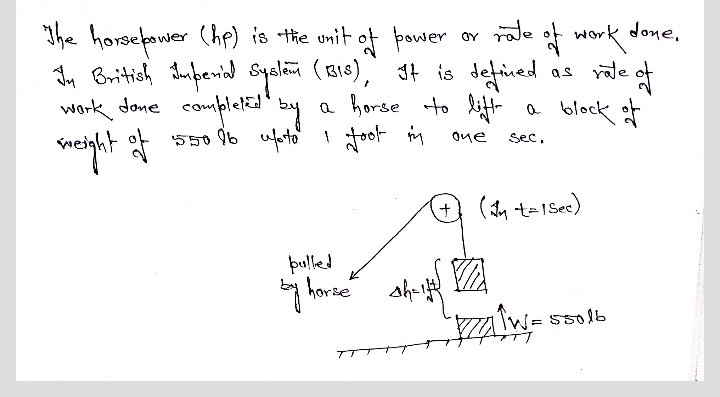 The horsepower (hp) is the unit of power or rate of work done.
In British Imperial System (BIS), It is defined as rate of
work done completed by a horse to lift a block of
weight of 550 lb upto 1 foot in one sec.
(In t=1sec)
pulled
by horse
Δh=1ft
W=550lb